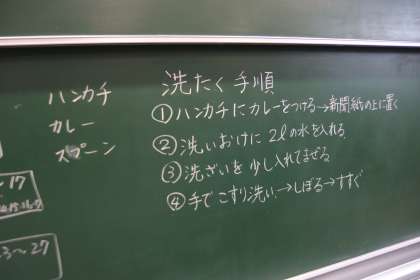 ハンカチ
カレー
スプーン
洗たく手順
①ハンカチにカレーをつける→新聞紙の上に置く
②洗いおけに2ℓの水を入れる
③洗ざいを少し入れてまぜる
④手でこすり洗い→しぼる→すすぐ
~17
~27